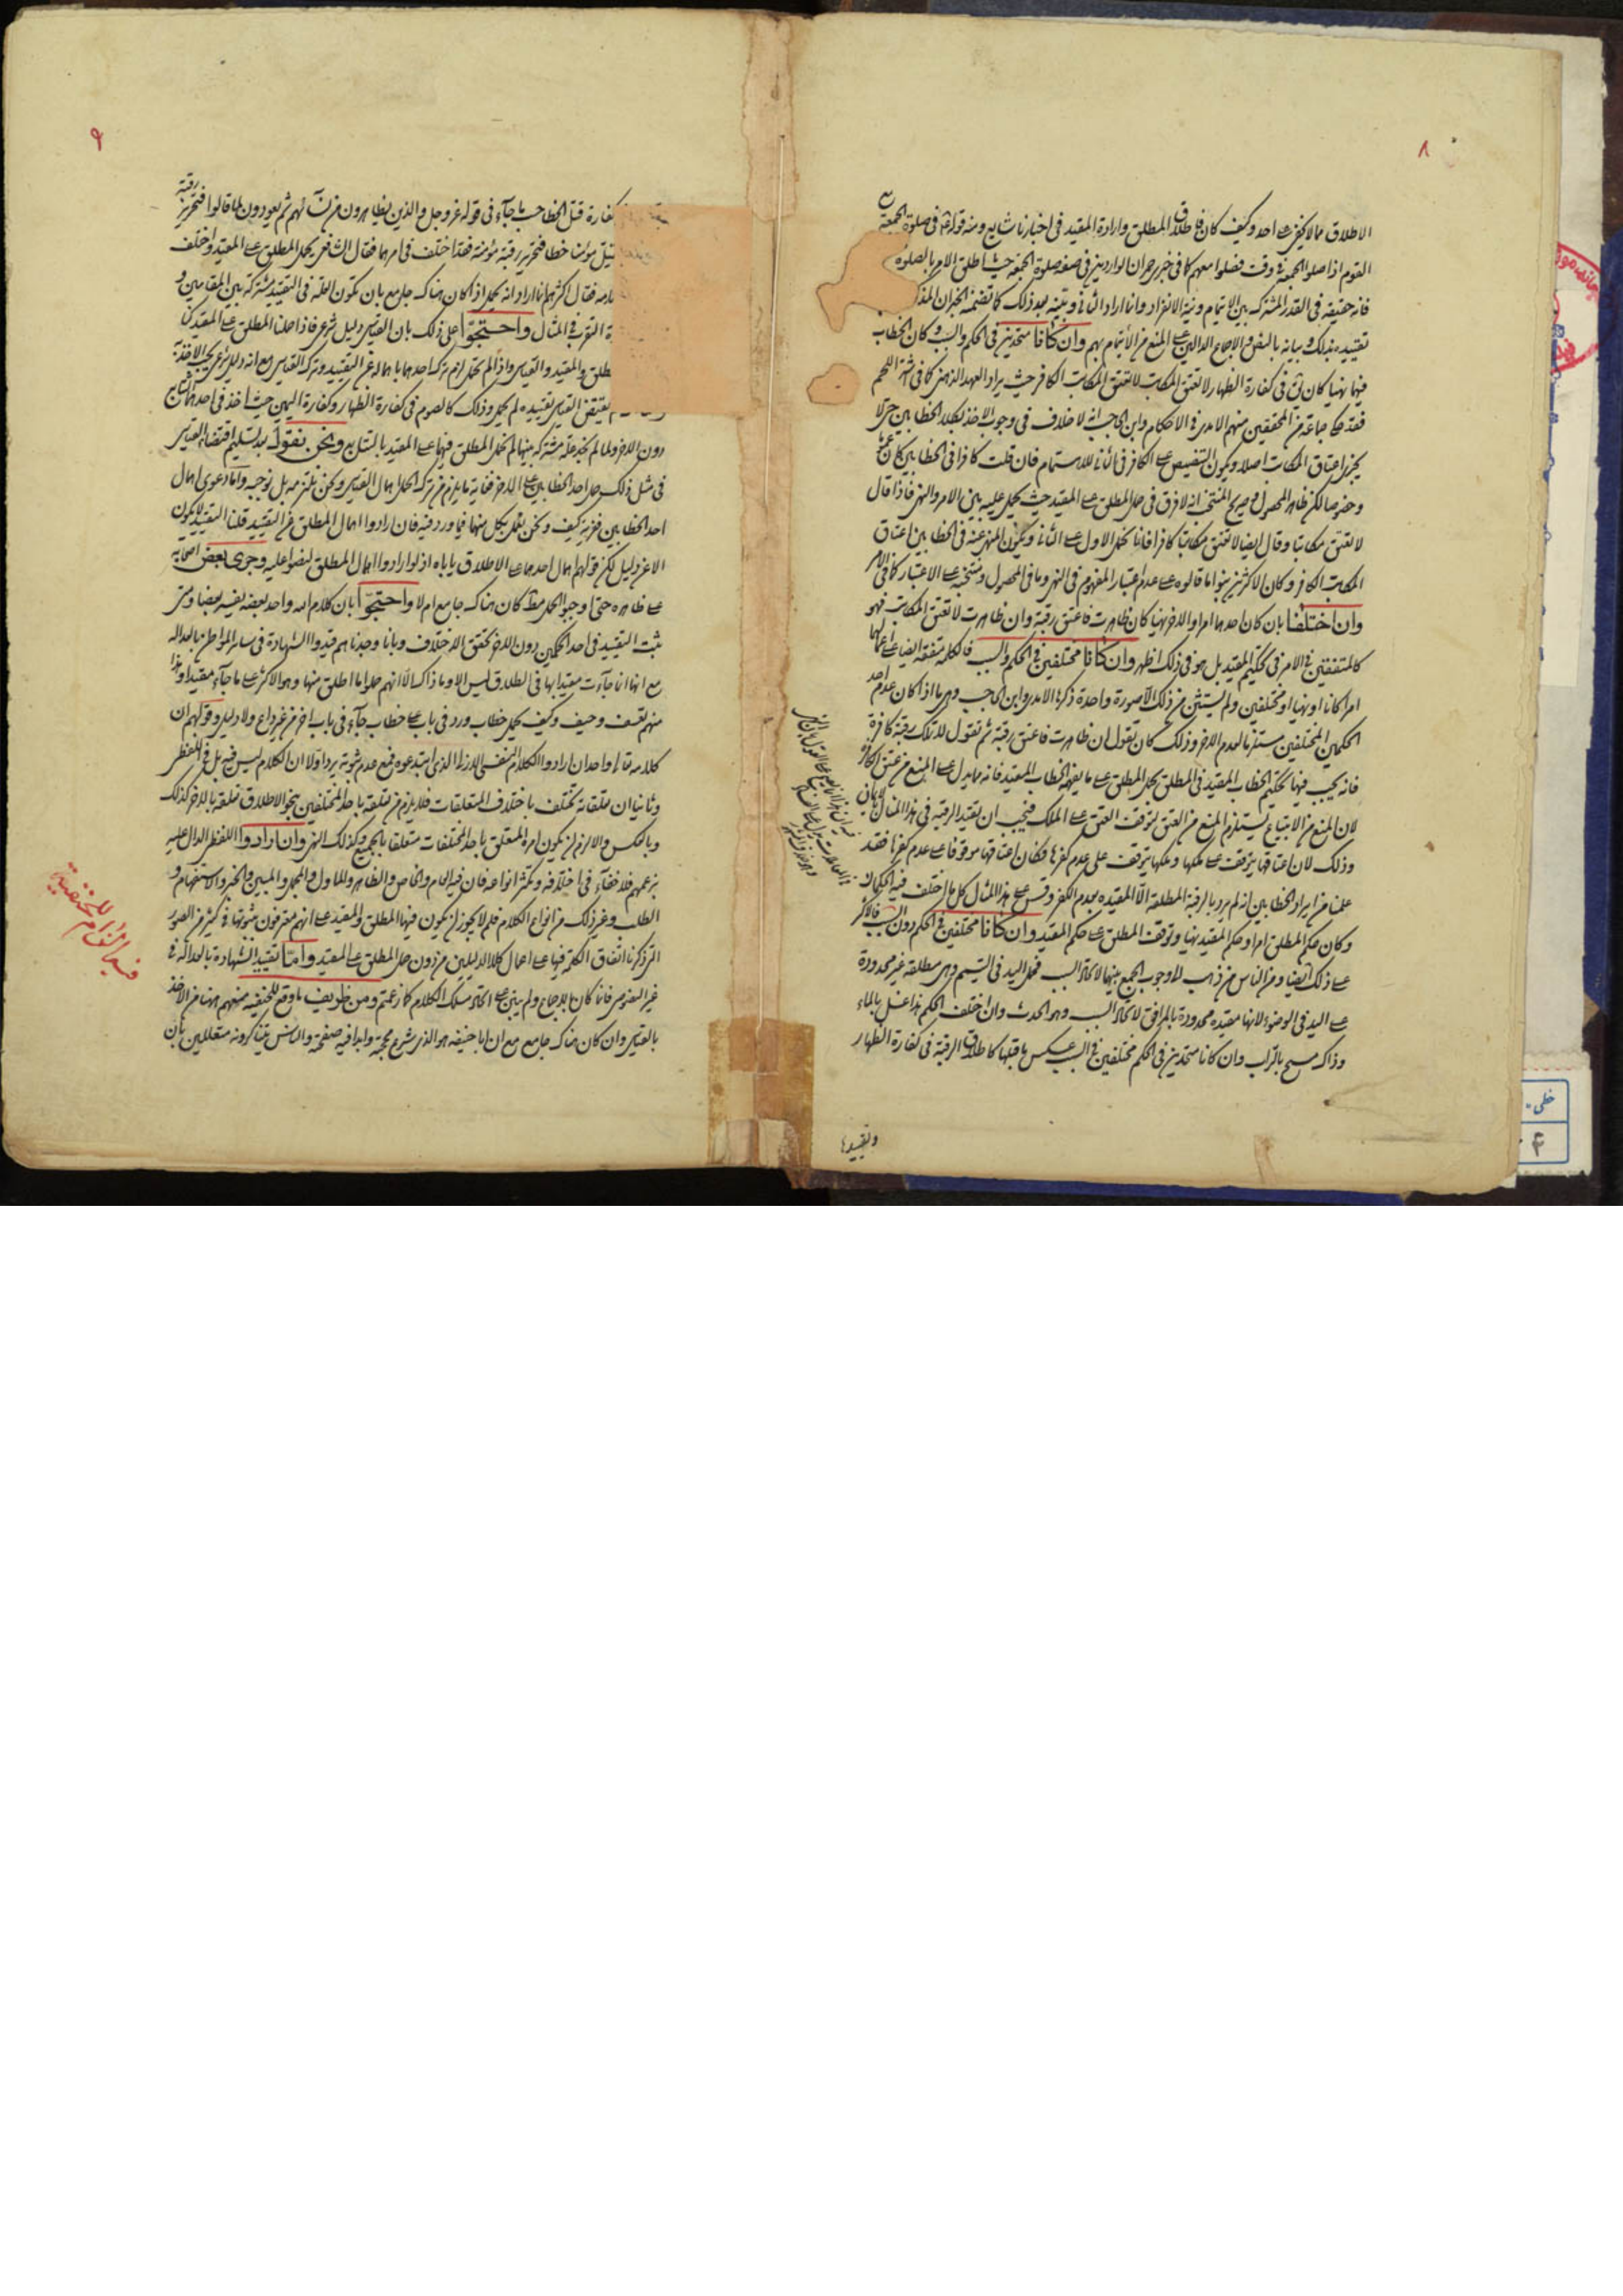 ٨
الاطلاق مما لا يخفى على احد وكيف كان فاطلاق المطلق وارادة المقيد في اخبارنا شايع ومنه قوله في صلوة الجمعة مع
القوم اذا صلوا الجمعة في وقت فصلوا معهم كما في خبر حمران الوارد في صفة صلوة الجمعة حيث اطلق الامر بالصلوة
فانه حقيقة في القدر المشترك بين الايتمام ونية الانفراد وانما اراد الثاني وبينه بعد ذلك كما تضمنه الخبران
تقييده بذلك وبيانه بالنص والاجماع الدالين على المنع من الائتمام بهم وان كانا متحدين في الحكم والسبب وكان الخطاب
فيهما نهيا كان في كفارة الظهار لا تعتق المكاتب لا تعتق المكاتب الكافر حيث يراد العهد الذهني كما في اشتر اللحم
فقد حكى جماعة من المحققين منهم الامدي في الاحكام وابن الحاجب انه لا خلاف في وجوب الاخذ بكلا الخطابين حتى لا
يجزي اعتاق المكاتب اصلا ويكون التنصيص على الكافر في الثاني للاهتمام فان قلت كافرا في الخطابين كان
وخصوصا لكن ظاهر المحصول وصريح المنتخب انه لا فرق في حمل المطلق على المقيد حيث يحمل عليه بين الامر والنهي فاذا قال
لا تعتق مكاتبا وقال ايضا لا تعتق مكاتبا كافرا فانا نحمل الاول على الثاني ويكون المنهي عنه في الخطابين اعتاق
المكاتب الكافر وكان الاكثرين بنوا ما قالوه على عدم اعتبار المفهوم في النهي وما في المحصول ومنتخبه على الاعتبار كما في الامر
وان اختلفا بان كان احدهما امرا والاخر نهيا كان ظاهرت فاعتق رقبة وان ظاهرت لا تعتق المكاتب فهو
كالمتفقين في الامر في تحكيم المقيد بل هو في ذلك اظهر وان كانا مختلفين في الحكم والسبب فالكلمة متفقة ايضا على اعمالهما
امرا كانا او نهيا او مختلفين ولم يستثن من ذلك الا صورة واحدة ذكرها الامدي وابن الحاجب وهي ما اذا كان عدم احد
الحكمين المختلفين مستلزما لعدم الاخر وذلك كان يقول ان ظاهرت فاعتق رقبة ثم تقول لا تملك رقبة كافرة
فانه يجب فيهما تحكيم الخطاب المقيد في المطلق بحمل المطلق على ما يفيده الخطاب المقيد فانه مما يدل على المنع من عتق الكافرة
لان المنع من الابتياع يستلزم المنع من العتق لتوقف العتق على الملك فيجب ان يقيد الرقبة في هذا المثال بالايمان
وذلك لان اعتاقها يتوقف على ملكها وملكها يتوقف على عدم كفرها فكان اعتاقها موقوفا على عدم كفرها فقد
علمنا من ايراد الخطابين انه لم يرد بالرقبة المطلقة الا المقيده بعدم الكفر وقس على هذا المثال كل ما اختلف فيه الحكمان
وكان حكم المطلق امرا وحكم المقيد نهيا وتوقف المطلق على حكم المقيد وان كانا مختلفين في الحكم دون السبب فالاكثر
على ذلك ايضا ومن الناس من ذهب الى وجوب الجمع بينهما لاتحاد السبب فحمل اليد في التيمم وهي مطلقة غير محدودة
على اليد في الوضوء لانها مقيده محدودة بالمرافق لاتحاد السبب وهو الحدث وان اختلف الحكم هذا غسل بالماء
وذاك مسح بالتراب وان كانا متحدين في الحكم مختلفين في السبب عكس ما قبلها كاطلاق الرقبة في كفارة الظهار
وتقييدها
٩
كفارة قتل الخطا حيث جآء في قوله عز وجل والذين يظاهرون من نسآئهم ثم يعودون لما قالوا فتحرير رقبة
مؤمنا خطا فتحرير رقبة مؤمنة فقد اختلف في امرهما فقال الشافعي يحمل المطلق على المقيد واختلف
فقال اكثرهم انما اراد انه يحمل اذا كان هناك جامع بان يكون العلة في التقييد مشتركة بين المقامين و
التقرب في المثال واحتجوا على ذلك بان القياس دليل شرعي فاذا حملنا المطلق على المقيد كنا
والمقيد والقياس واذا لم نحمل لزم ترك احدهما باهماله عن التقييد وترك القياس مع انه دليل شرعي يجب الاخذ به
يقتض القياس تقييده لم يحمل وذلك كالصوم في كفارة الظهار وكفارة اليمين حيث اخذ في احدهما التتابع
دون الاخر ولما لم نجد علة مشتركة بينهما لم نحمل المطلق فيهما على المقيد بالتتابع ونحن نقول بعد تسليم اقتضاء القياس
في مثل ذلك حمل احد الخطابين على الاخر فغاية ما يلزم من ترك الحمل اهمال القياس ونحن نلتزمه بل نوجبه واما دعوى اهمال
احد الخطابين ففرية كيف ونحن نعمل بكل منهما فيما ورد فيه فان ارادوا اهمال المطلق عن التقييد قلنا التقييد لا يكون
الا عن دليل لكن قولهم اهمال احدهما على الاطلاق ياباه اذ لو ارادوا اهمال المطلق لنصوا عليه وجرى بعض اصحابه
على ظاهره حتى اوجبوا الحمل مطلقا كان هناك جامع ام لا واحتجوا بان كلام الله واحد بعضه يفسر بعضا ومتى
ثبت التقييد في احد الحكمين دون الاخر تحقق الاختلاف وبانا وجدناهم قيدوا الشهادة في سائر المواطن بالعدالة
مع انها انما جآءت مقيدا بها في الطلاق ليس الا وما ذاك الا انهم حملوا ما اطلق منها وهو الاكثر على ما جآء مقيدا وهذا
منهم تعسف وحيف وكيف يحمل خطاب ورد في باب على خطاب جآء في باب اخر من غير داع ولا دليل وقولهم ان
كلامه تعالى واحد ان ارادوا الكلام النفسي الازلي الذي ابتدعوه فمع عدم ثبوته يرد اولا ان الكلام ليس فيه بل في اللفظي
وثانيا ان متعلقاته تختلف باختلاف المتعلقات فلا يلزم من تعلقه باحد المختلفين بنحو الاطلاق تعلقه بالاخر كذلك
وبالعكس والا لزم ان يكون امره المتعلق باحد المختلفات متعلقا بالجميع وكذلك النهي وان ارادوا اللفظ الدال عليه
بزعمهم فلا خفآء في اختلافه وتكثر انواعه فان فيه العام والخاص والظاهر والماول والمجمل والمبين والخبر والاستفهام و
الطلب وغير ذلك من انواع الكلام فلم لا يجوز ان يكون فيها المطلق والمقيد على انهم معترفون بثبوتهما في كثير من الصور
التي ذكرنا اتفاق الكلمة فيها على اعمال كلا الدليلين من دون حمل المطلق على المقيد واما تقييد الشهادة بالعدالة في
غير المنصوص فانما كان بالاجماع ولم يبتن على اتحاد مسلك الكلام كما زعمتم ومن طريف ما وقع للحنفية منعهم ههنا من الاخذ
بالقياس وان كان هناك جامع مع ان ابا حنيفة هو الذي شرع محجته وابدا فيه صفحته والناس يتناكرونه متعللين بان